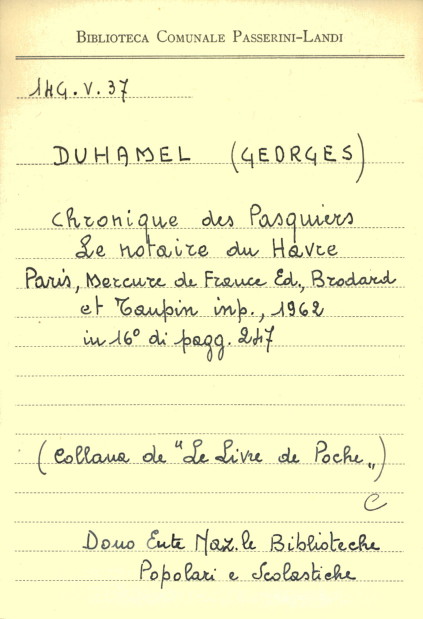 BIBLIOTECA COMUNALE PASSERINI-LANDI
14G.V.37
DUHAMEL (GEORGES)
Chronique des Pasquiers
Le notaire du Havre
Paris, Mercure de France Ed., Brodard
et Taupin inp., 1962
in 16° di pagg. 247
(Collana de "Le Livre de Poche„)
C
Dono Ente Naz.le Biblioteche
Popolari e Scolastiche